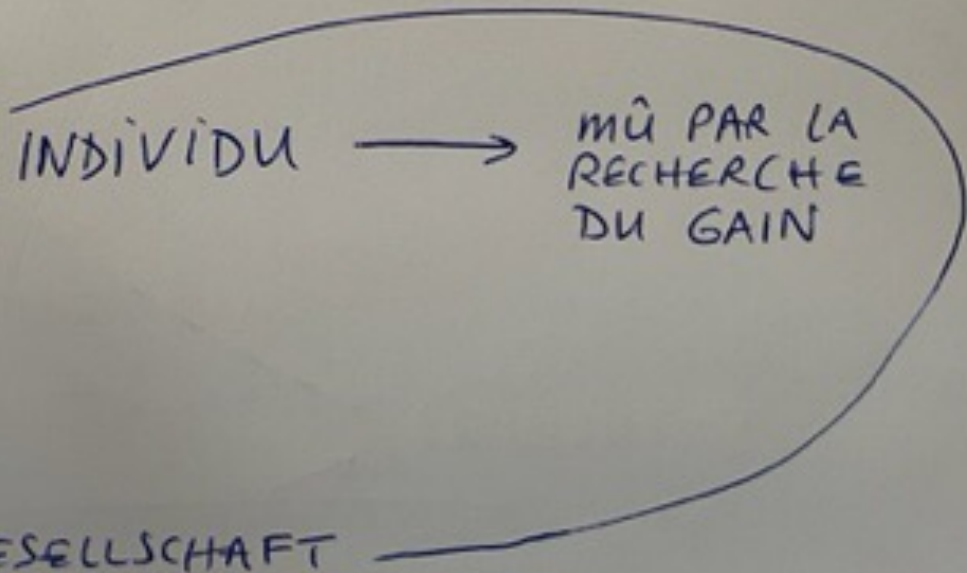 INDIVIDU → mû PAR LA
RECHERCHE
DU GAIN
ESELLSCHAFT